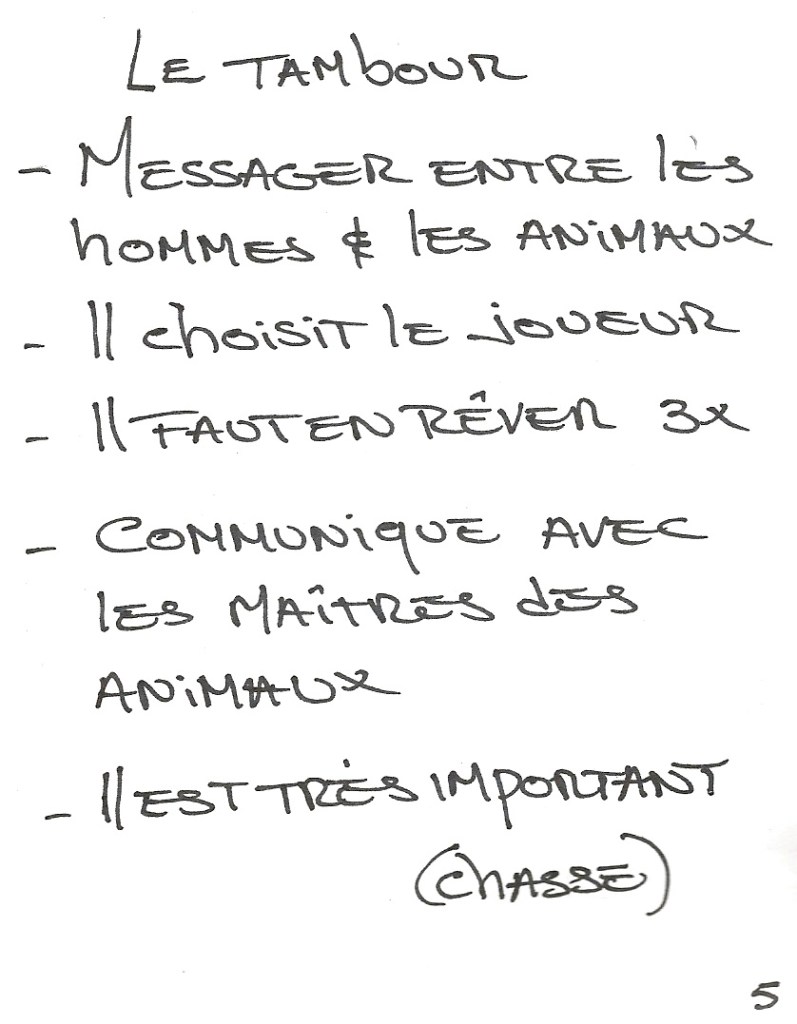 LE TAMbOUR
- MESSAGER ENTRE lES
hOMMES & lES ANiMAUX
- Il choisiT lE jOUEUR
- Il FAUT EN RÊVER 3x
- COMMUNiqUE AVEC
lES MAîTRES dES
ANiMAUX
- Il EST TRÈS IMpORTANT
(chASSE)
5